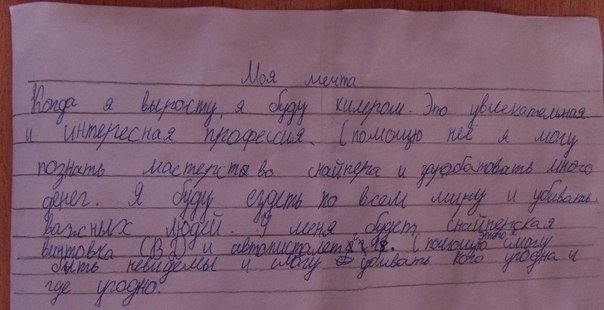 Моя мечта
Когда я выросту, я буду килером. Это увлекательная
и интересная профессия. С помощю неё я могу
познать мастерство снайпера и зарабатовать много
денег. Я буду ездеть по всем миру и убивать
важных людей. У меня будет снайперская
винтовка (ВЗ) и автопистолет. С помощю этого смогу
быть невидемы и смогу убивать кого угодна и
где угодно.